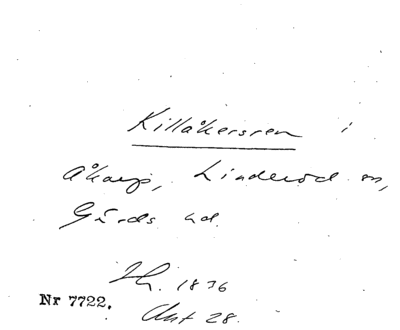 Killåkersren i
Åkarp, Linderöd sn,
Gärds hd.
1836
Nr 7722.
Akt 28.